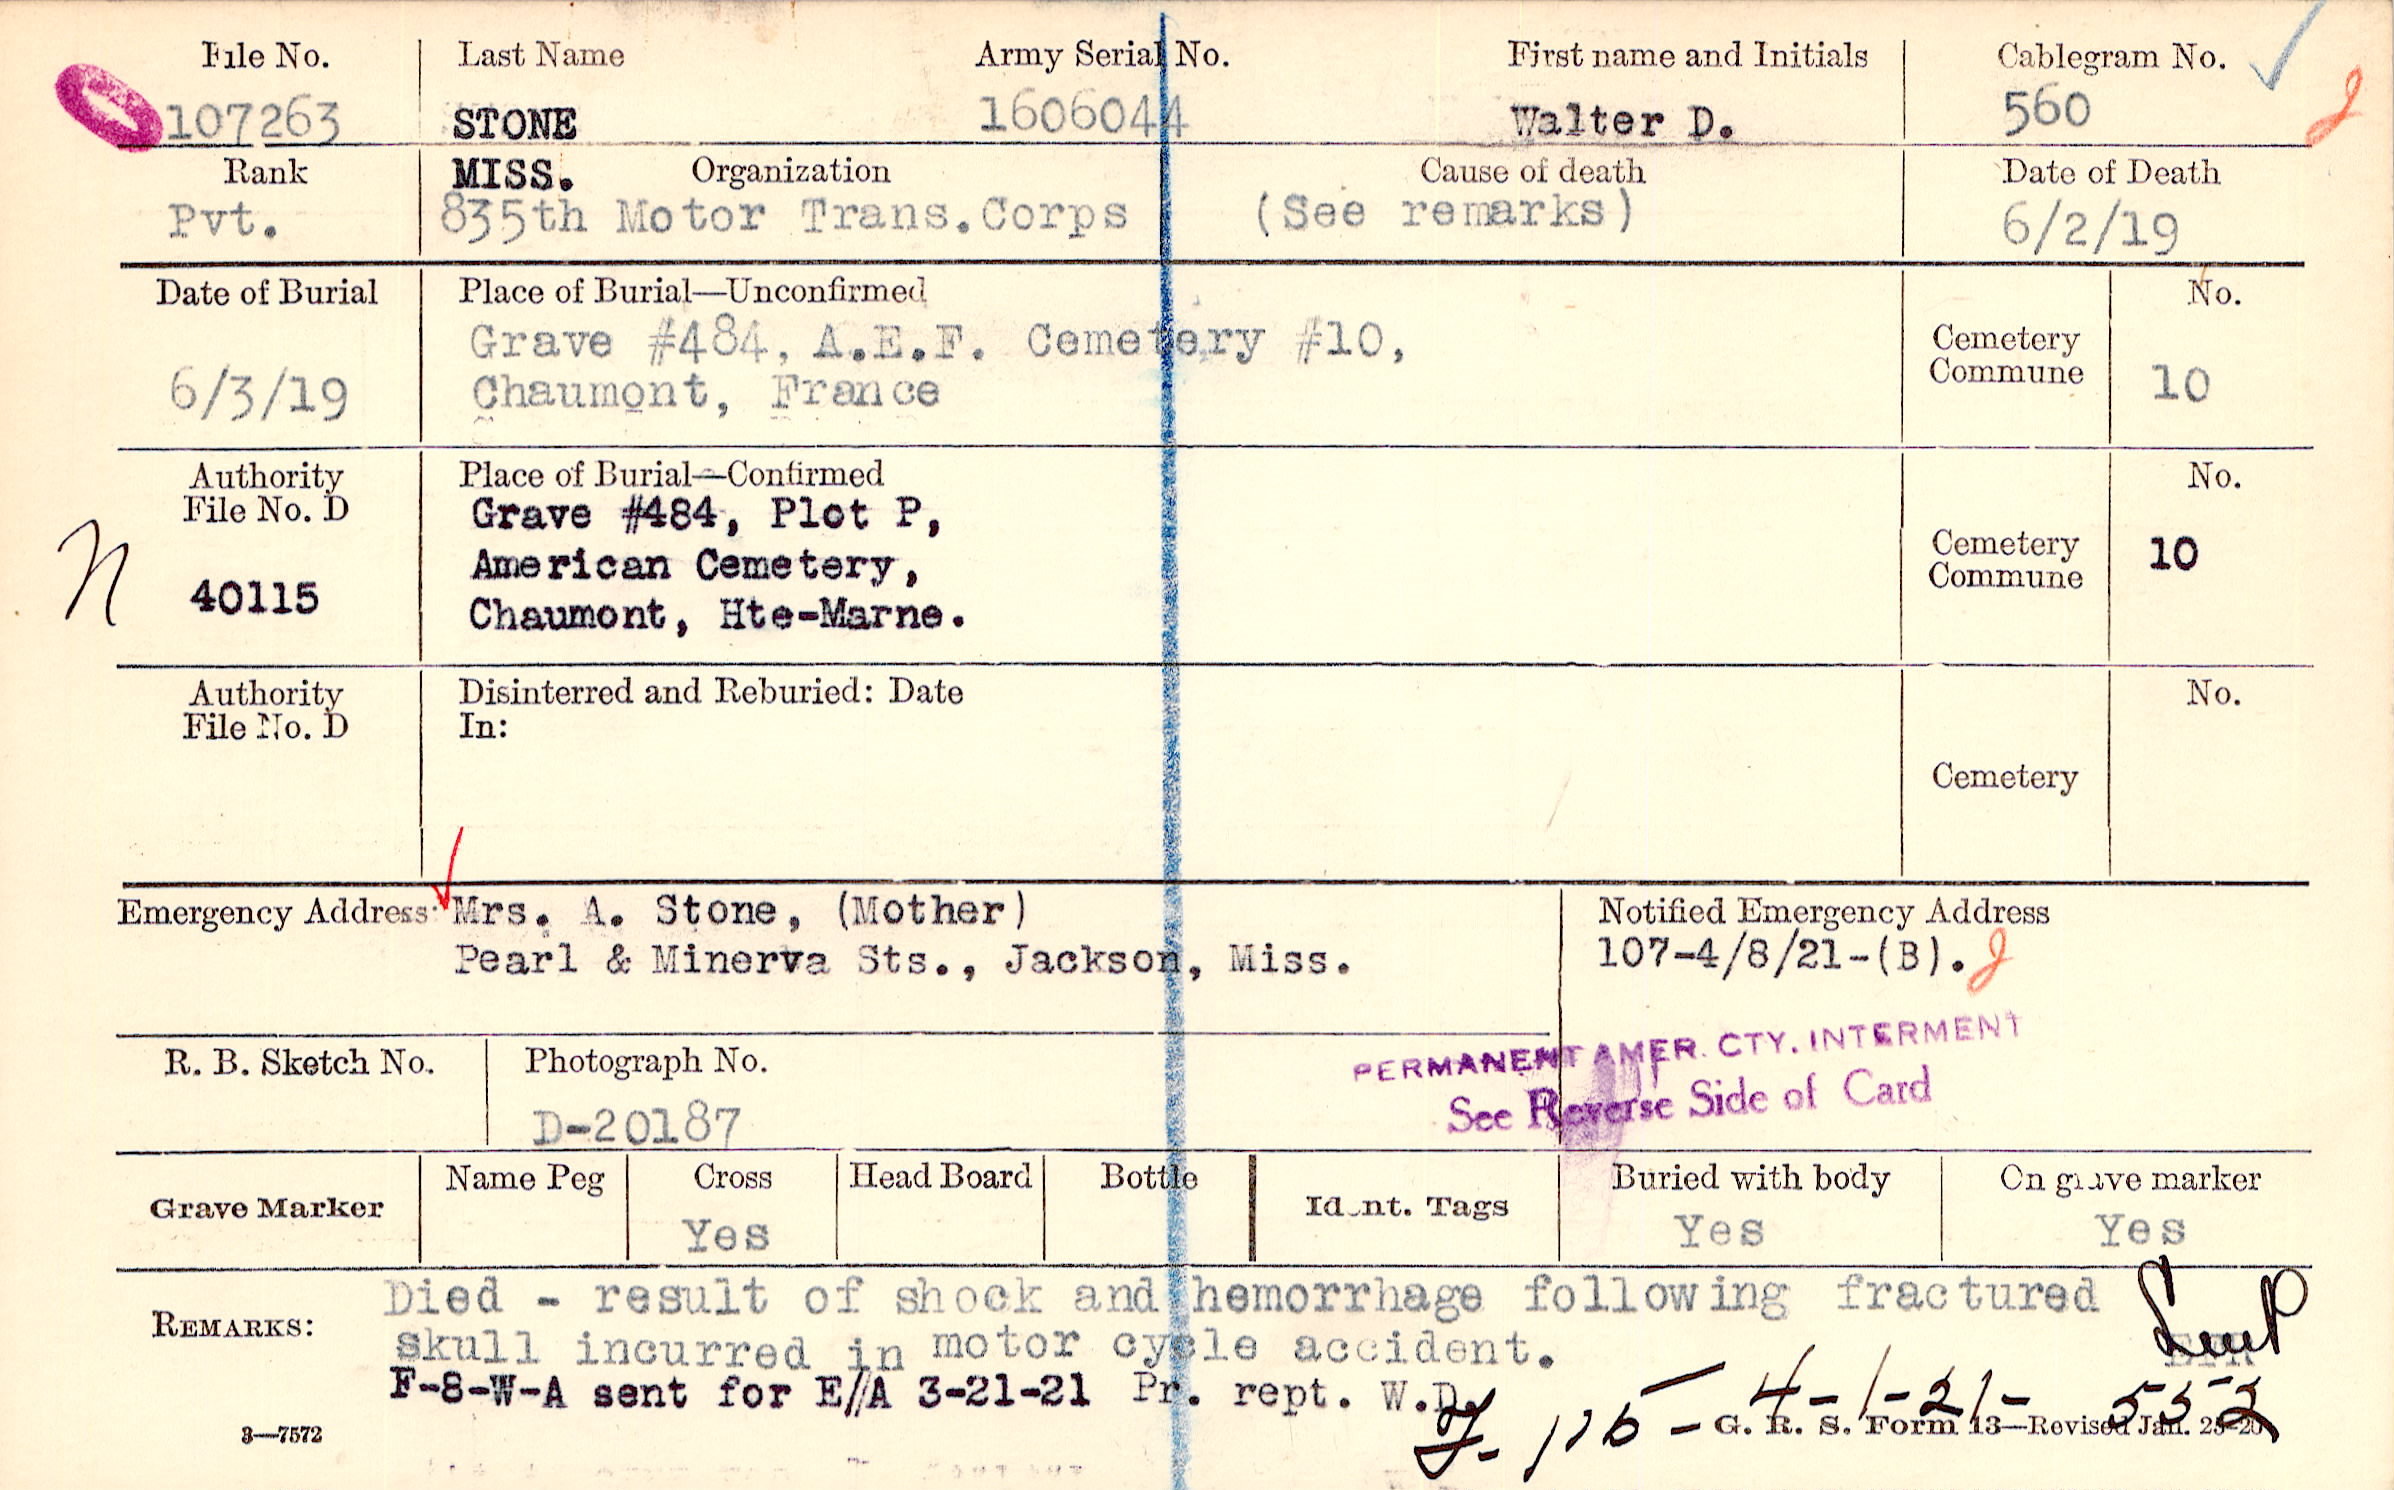 File No. Last Name Army Serial No. First name and Initials Cablegram No.
107263 STONE 1606044 Walter D. 560
Rank MISS. Organization Cause of death Date of Death
Pvt. 835th Motor Trans.Corps (See remarks) 6/2/19
Date of Burial Place of Burial—Unconfirmed No.
Grave #484, A.E.F. Cemetery #10,
Cemetery
Commune
6/3/19 Chaumont, France 10
Authority Place of Burial—Confirmed No.
File No. D Grave #484, Plot P,
American Cemetery,
Cemetery
Commune
10
N
40115
Chaumont, Hte-Marne.
Authority Disinterred and Reburied: Date No.
File No. D In:
Cemetery
Emergency Address: Mrs. A. Stone, (Mother) Notified Emergency Address
Pearl & Minerva Sts., Jackson, Miss. 107-4/8/21-(B).
PERMANENT AMER. CTY. INTERMENT
See Reverse Side of Card
R. B. Sketch No. Photograph No.
D-20187
Grave Marker Name Peg Cross Head Board Bottle Ident. Tags Buried with body On grave marker
Yes Yes Yes
REMARKS: Died - result of shock and hemorrhage following fractured
skull incurred in motor cycle accident.
F-8-W-A sent for E/A 3-21-21 Pr. rept. W.D.
4-1-21-
3—7572
G. R. S. Form 13—Revised Jan. 25-20